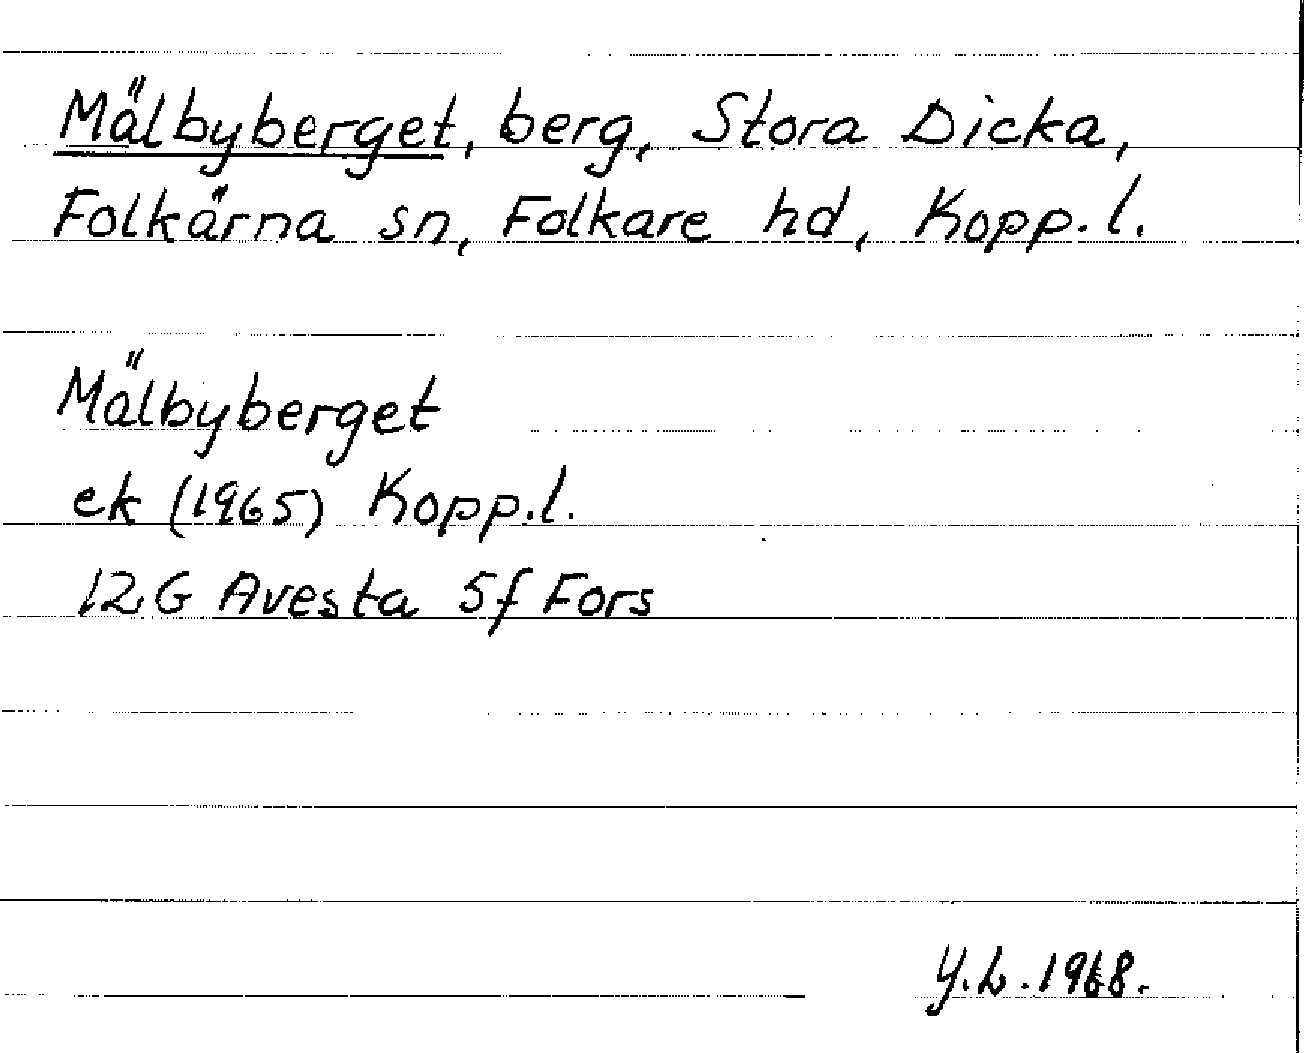 Mälbyberget, berg, Stora Dicka,
Folkärna sn, Folkare hd, Kopp.l.
Mälbyberget
ek (1965) Kopp.l.
12G Avesta 5f Fors
Y.L. 1968.